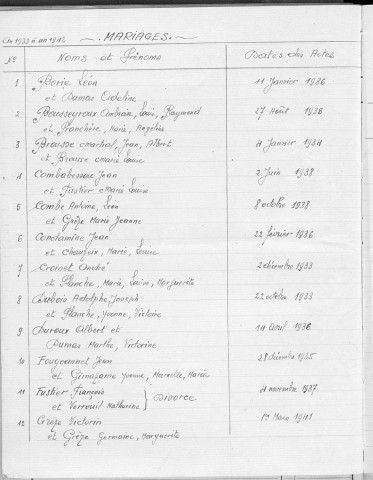 1933 à 1942 — MARIAGES. —
Nº Noms et Prénoms Dates des Actes
1 Borie Léon 11 Janvier 1936
et Dumas Odeline
2 Bousseyroux Ambroise, Louis, Raymond 27 Août 1936
et Planchère, Marie, Angèline
3 Brousse Martial, Jean, Albert 4 Janvier 1934
et Brousse Marie Louise
4 Combabessou Jean 2 Juin 1938
et Fustier Marie Louise
5 Combe Antoine, Léon 8 octobre 1938
et Grèze Marie Jeanne
6 Condamine Jean 22 février 1936
et Chauzeix, Marie, Louise
7 Croizet André 2 décembre 1933
et Planche, Marie, Louise, Marguerite
8 Dubois Adolphe, Joseph 22 octobre 1933
et Planche, Yvonne, Victorine
9 Duroux Albert et 14 Avril 1936
Dumas Marthe, Victorine
10 Fougeannet Jean 28 décembre 1935
et Gimazane Yvonne, Marcelle, Maria
11 Fustier François 4 novembre 1937
et Verrouil Catherine } Divorce
12 Grèze Victorin 1er Mars 1941
et Grèze Germaine, Marguerite